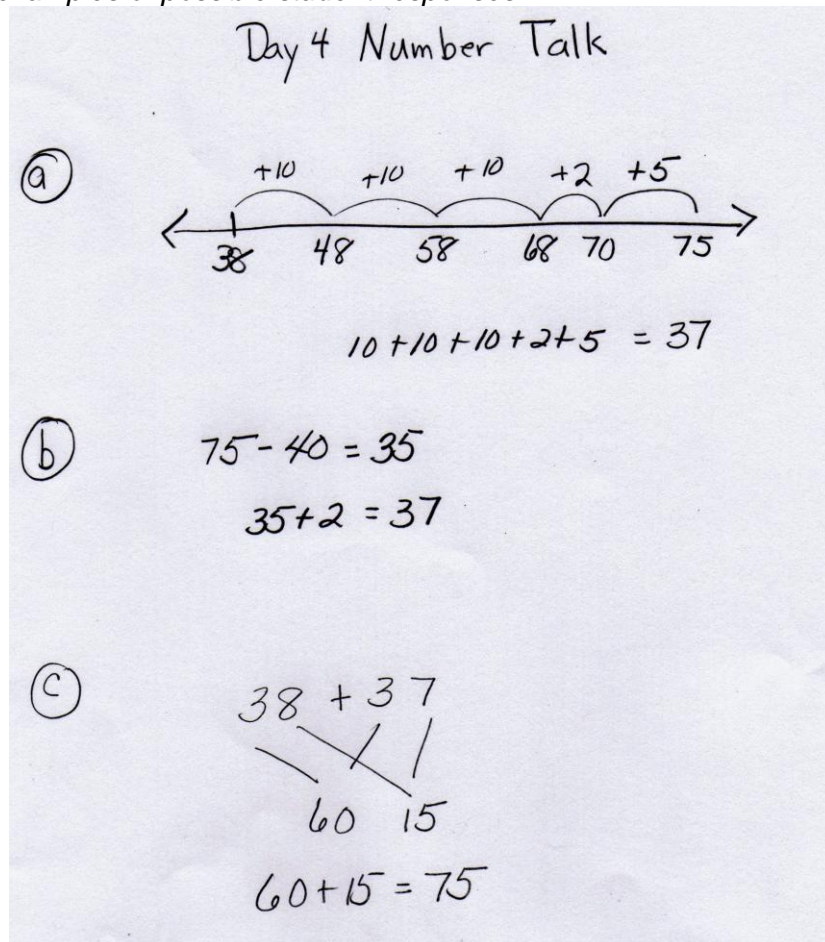 Day 4 Number Talk
a
+10 +10 +10 +2 +5
38 48 58 68 70 75
10+10+10+2+5 = 37
b
75-40 = 35
35+2 = 37
c
38 + 37
60 15
60+15 = 75